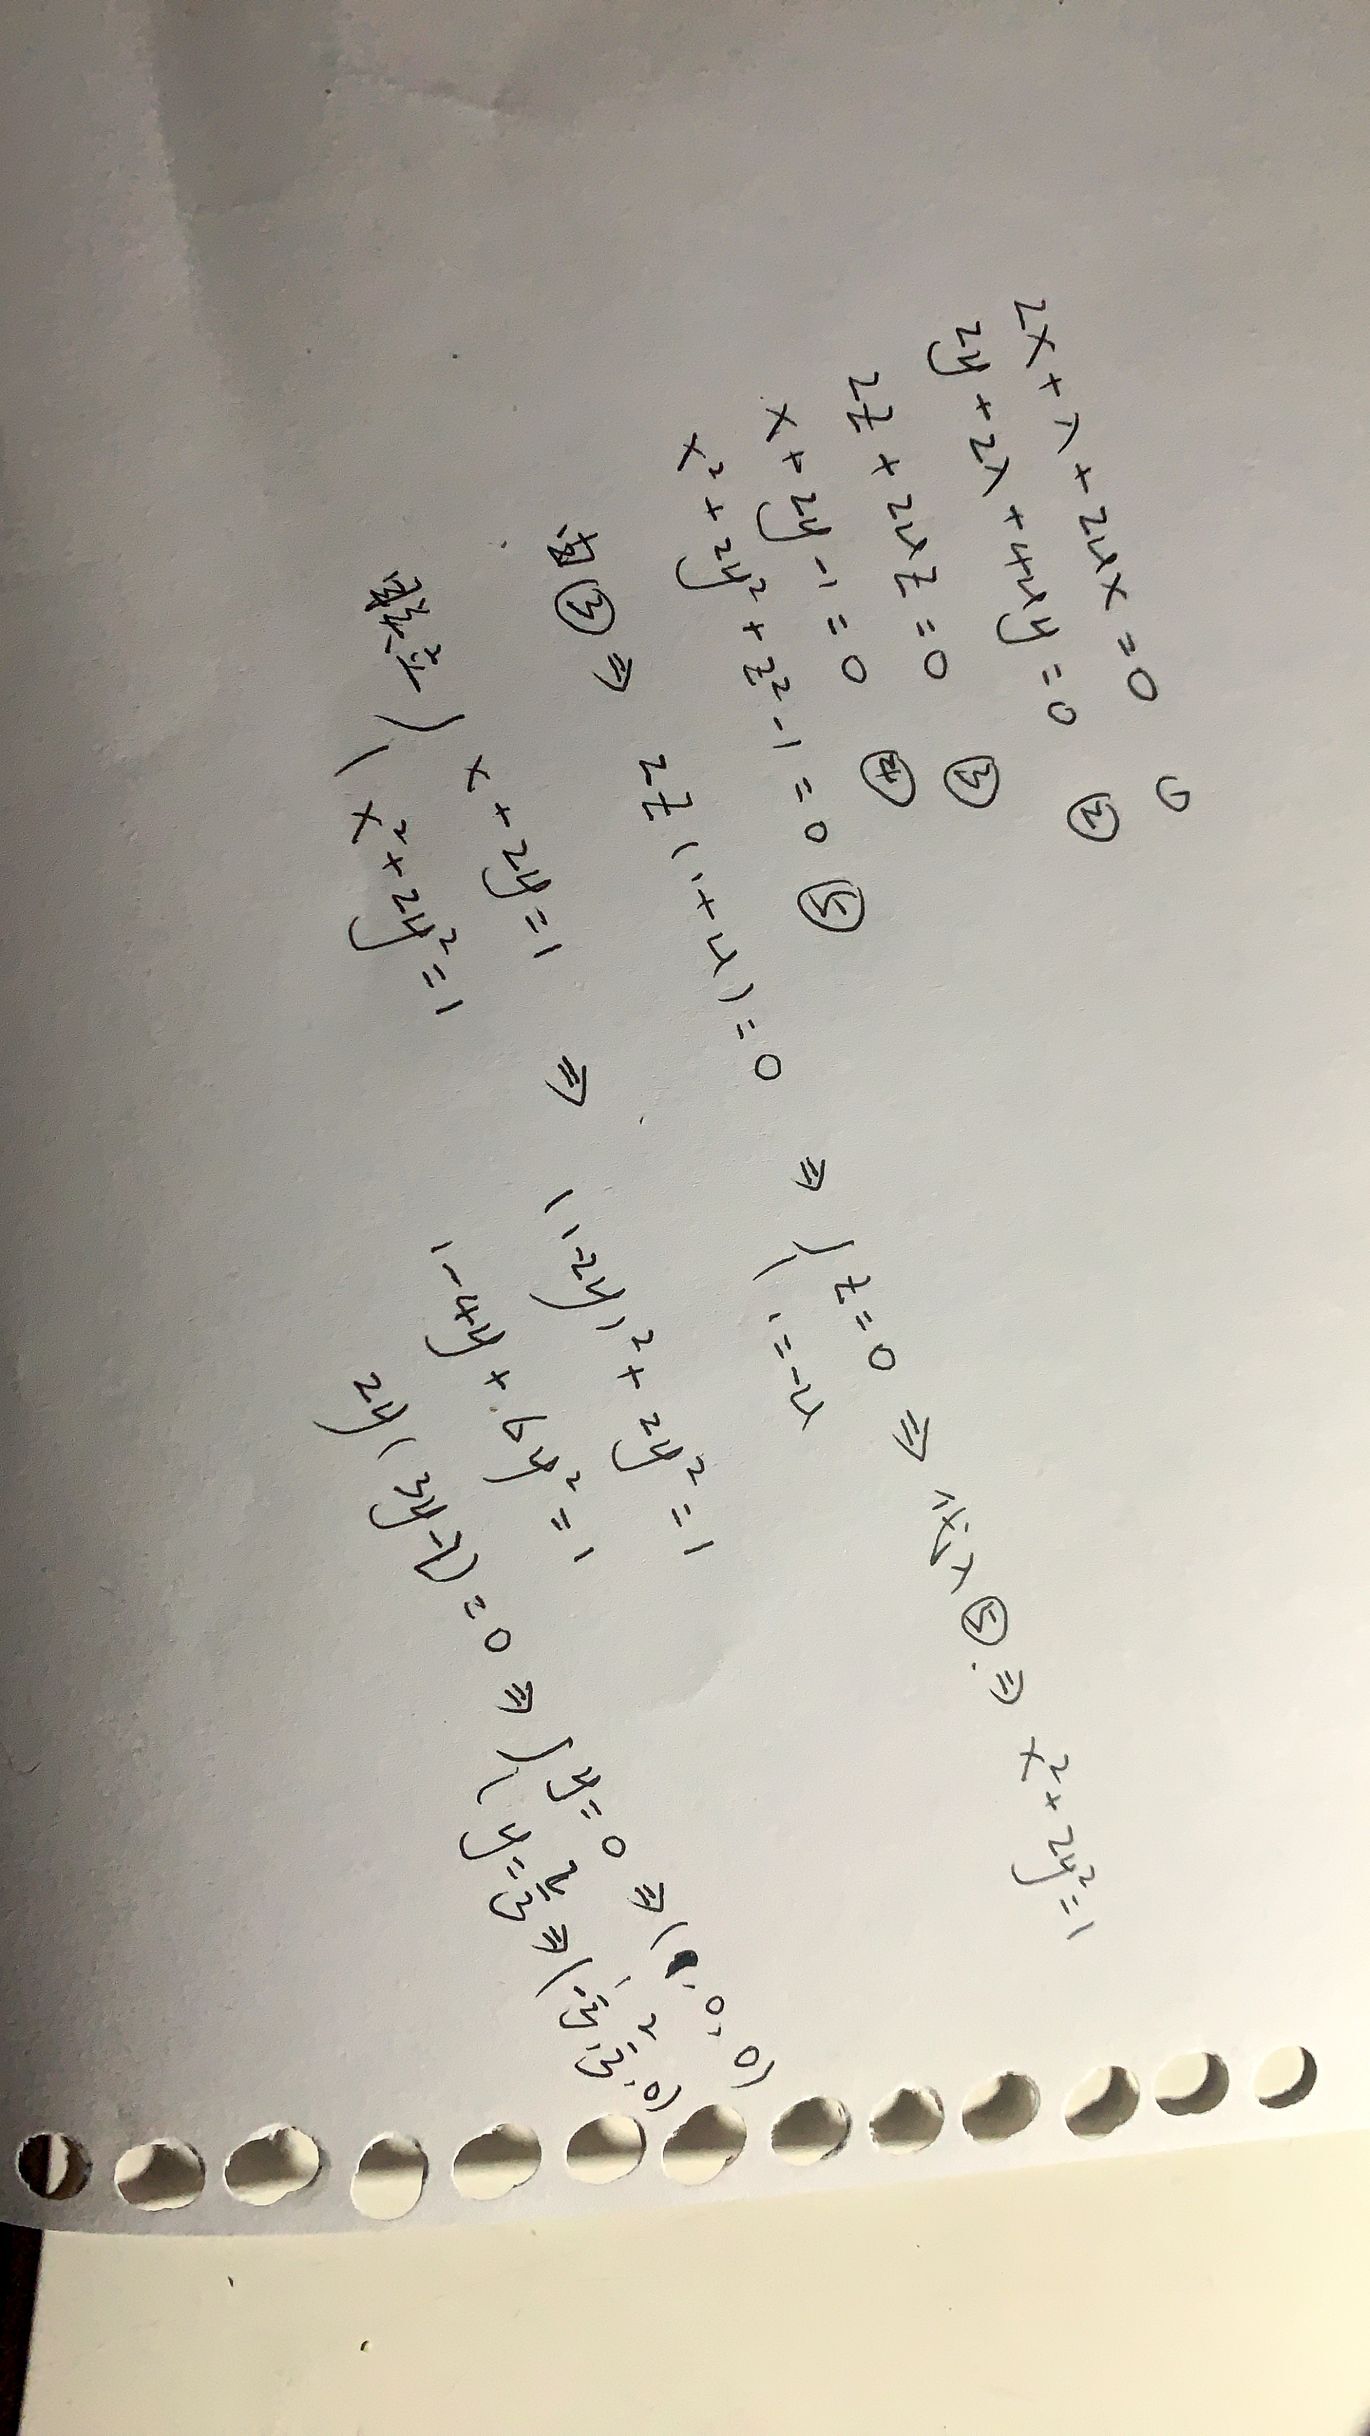 2x + λ + 2μx = 0 ①
2y + 2λ + 4μy = 0 ②
2z + 2μz = 0 ③
x + 2y - 1 = 0 ④
x² + 2y² + z² - 1 = 0 ⑤
由③ ⇒ 2z(1+μ) = 0 ⇒ { z = 0 ⇒ 代入⑤ ⇒ x² + 2y² = 1
1 = -μ
{ x + 2y = 1 ⇒ (1-2y)² + 2y² = 1
x² + 2y² = 1 1 - 4y + 6y² = 1
2y(3y-2) = 0 ⇒ { y = 0 ⇒ (1, 0, 0)
y = 2/3 ⇒ (-1/3, 2/3, 0)